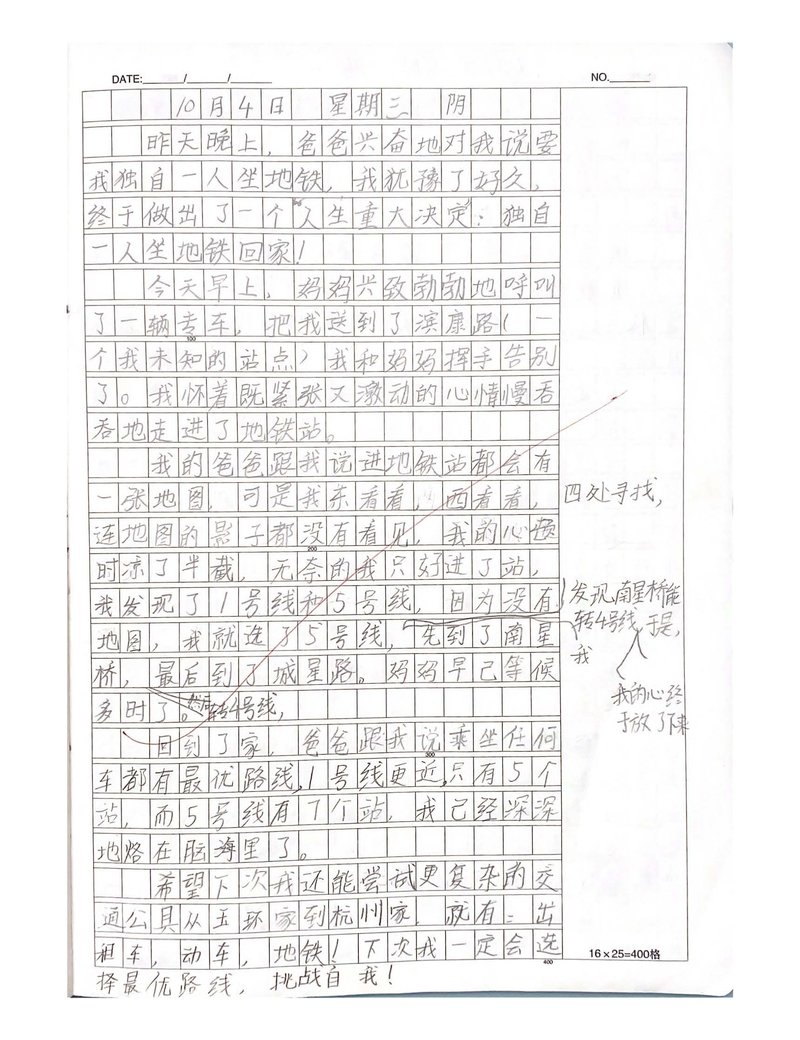 DATE:____/____/____ NO.____
10月4日 星期三 阴
昨天晚上，爸爸兴奋地对我说要
我独自一人坐地铁，我犹豫了好久，
终于做出了一个人生重大决定：独自
一人坐地铁回家！
今天早上，妈妈兴致勃勃地呼叫
了一辆专车，把我送到了滨康路（一
100
个我未知的站点）我和妈妈挥手告别
了。我怀着既紧张又激动的心情慢吞
吞地走进了地铁站。
我的爸爸跟我说进地铁站都会有
一张地图，可是我东看看，西看看，四处寻找，
连地图的影子都没有看见，我的心顿
200
时凉了半截，无奈的我只好进了站，
我发现了1号线和5号线，因为没有
发现，南星桥能
地图，我就选了5号线，先到了南星
转4号线，于是，
我
桥，最后到了城星路。妈妈早已等候
我的心终
于放了下来
多时了。然后转4号线，
回到了家，爸爸跟我说乘坐任何
300
车都有最优路线，1号线更近，只有5个
站，而5号线有7个站，我已经深深
地烙在脑海里了。
希望下次我还能尝试更复杂的交
通公具从玉环家到杭州家，就有：出
租车，动车，地铁！下次我一定会选
400
16×25=400格
择最优路线，挑战自我！